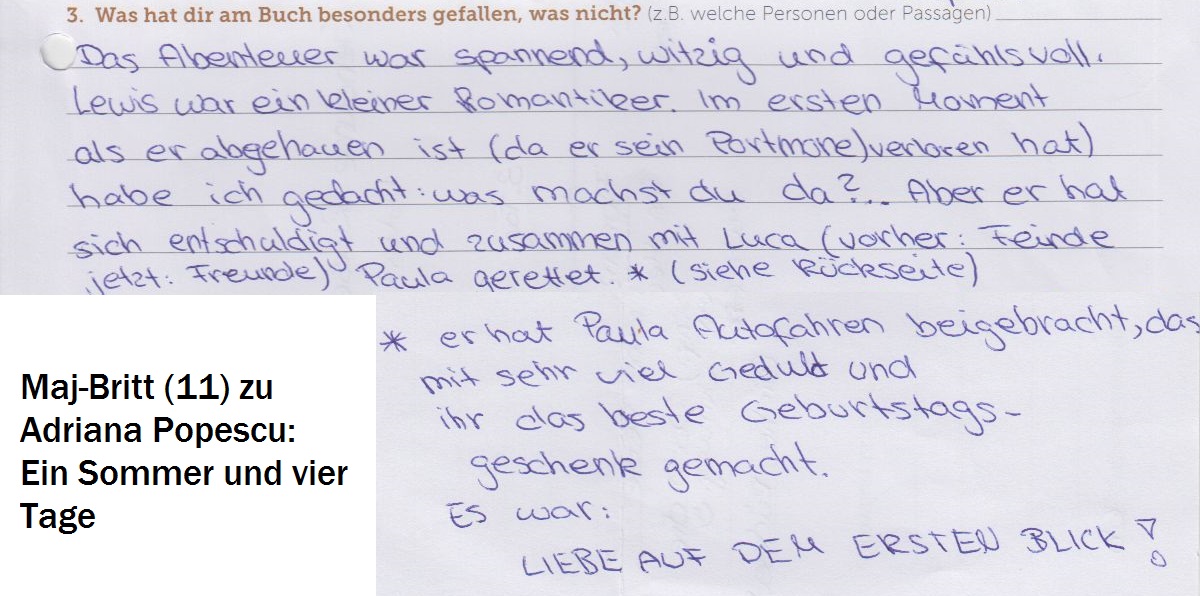 3. Was hat dir am Buch besonders gefallen, was nicht? (z.B. welche Personen oder Passagen)
Das Abenteuer war spannend, witzig und gefühlsvoll.
Lewis war ein kleiner Romantiker. Im ersten Moment
als er abgehauen ist (da er sein Portmone) verloren hat)
habe ich gedacht: was machst du da?... Aber er hat
sich entschuldigt und zusammen mit Luca (vorher: Feinde
jetzt: Freunde) Paula gerettet. * (siehe Rückseite)
* er hat Paula Autofahren beigebracht, das
mit sehr viel Geduld und
ihr das beste Geburtstags-
geschenk gemacht.
Es war:
LIEBE AUF DEM ERSTEN BLICK!
Maj-Britt (11) zu
Adriana Popescu:
Ein Sommer und vier
Tage